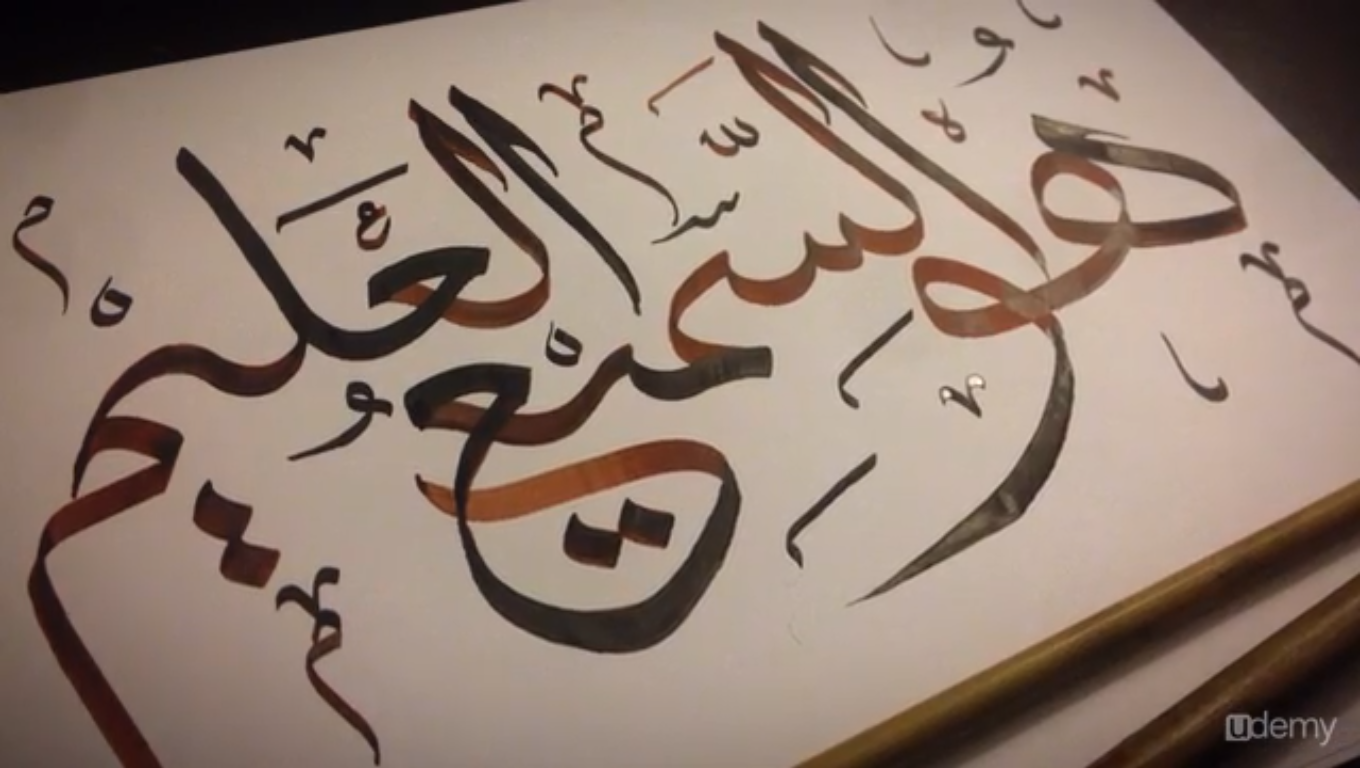 هو السَّمِيعُ العَلِيمُ
udemy